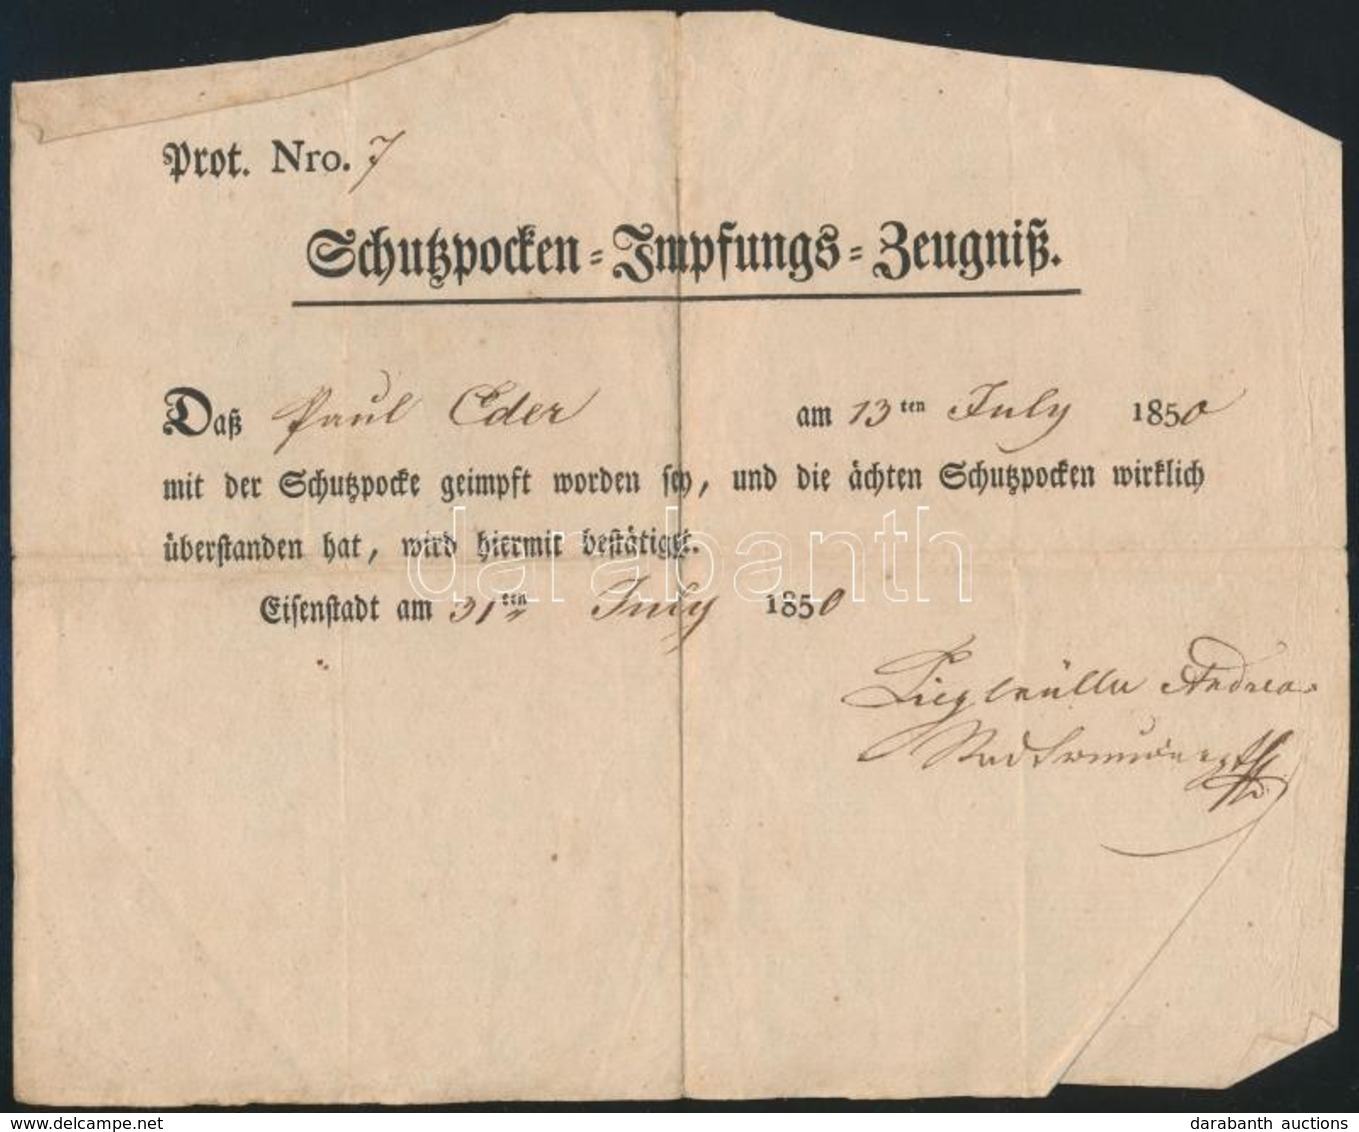 Prot. Nro. 7
Schutzpocken-Impfungs-Zeugniß.
Daß Paul Eder am 13ten July 1850
mit der Schutzpocke geimpft worden sey, und die ächten Schutzpocken wirklich
überstanden hat, wird hiermit bestätiget.
Eisenstadt am 31ten July 1850
Andreas
darabanth
www.delcampe.net
darabanth auctions